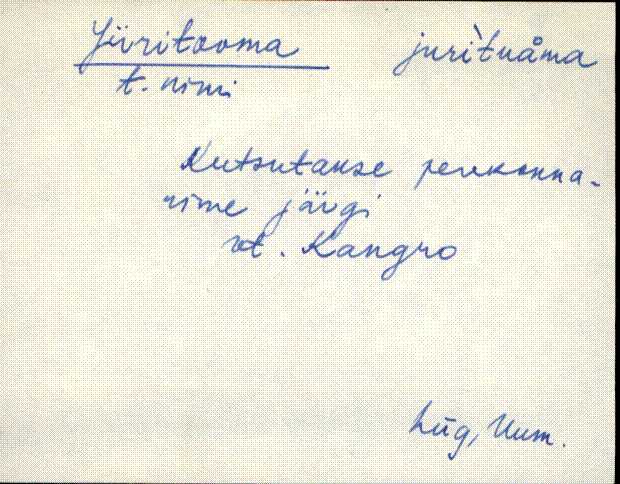 Jüritooma juri`tuåma
t. nimi
Kutsutakse perekonna-
nime järgi
vt. Kangro
Lüg, Uum.